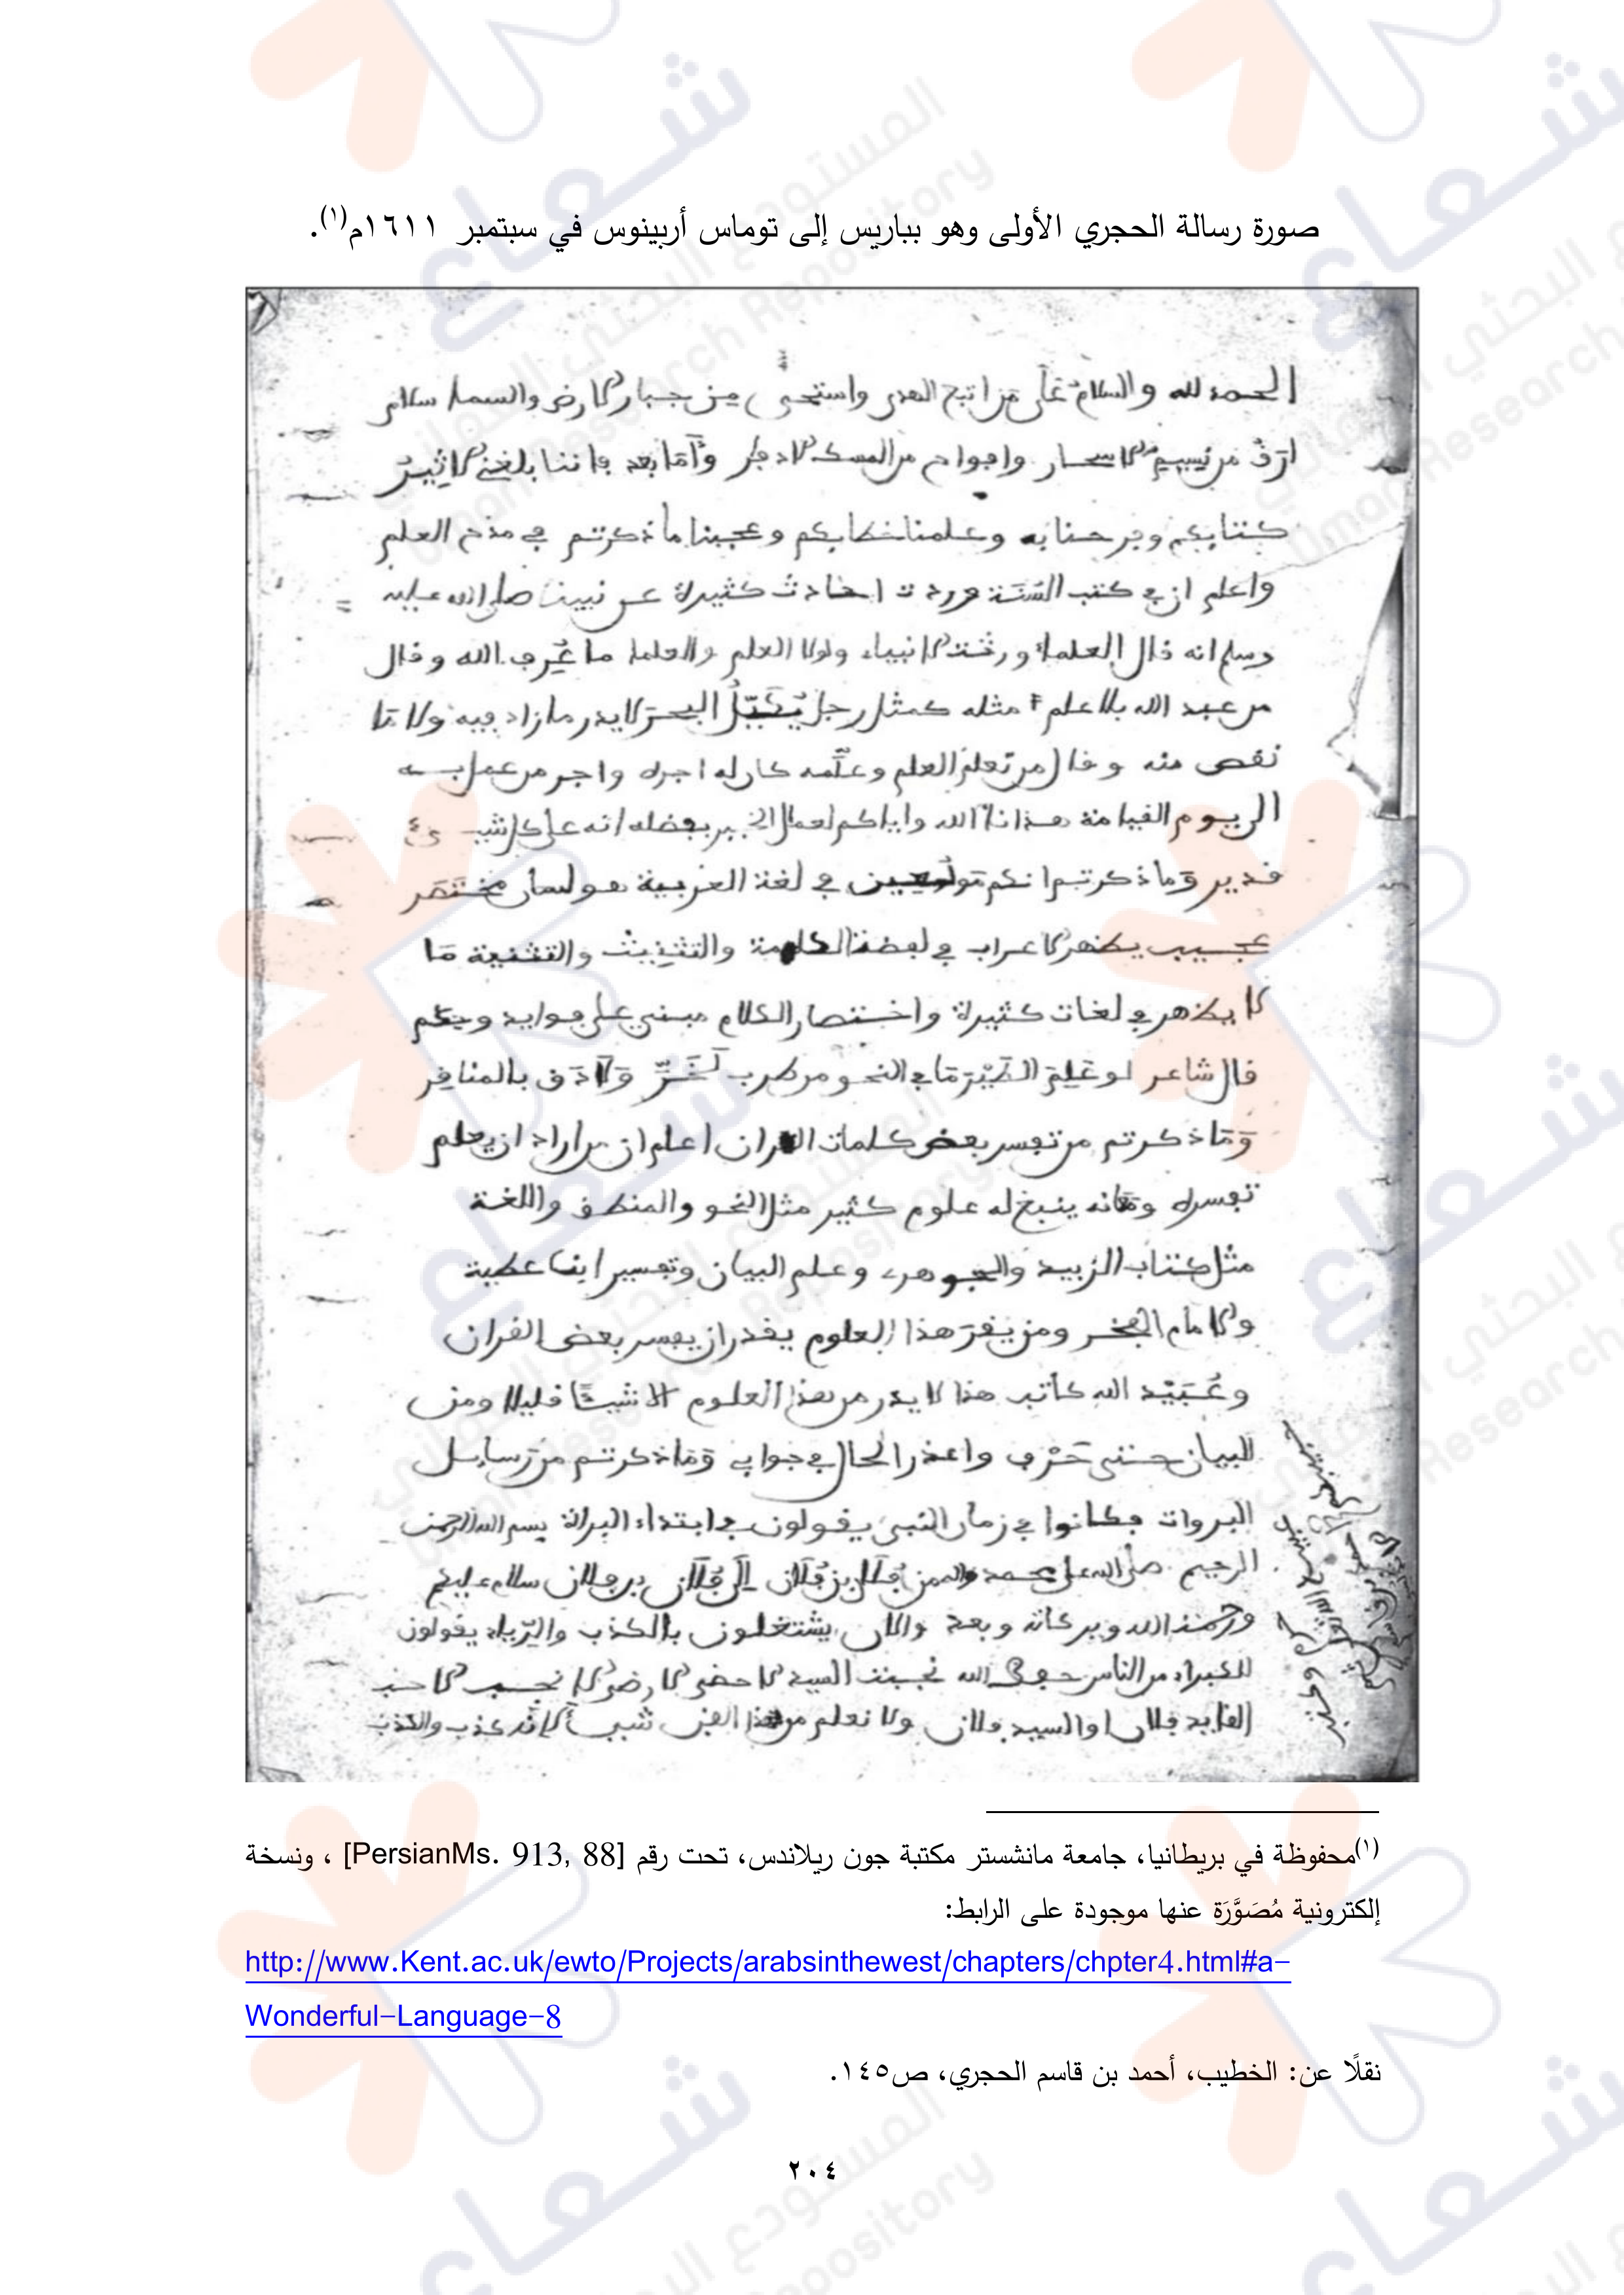 صورة رسالة الحجري الأولى وهو بباريس إلى توماس أربينوس في سبتمبر ١٦١١م(١).
الحمد لله والسلام على من اتبع الهدى واستحيى من جبار الارض والسما سلام
ارق من نسيم الاسحار وافواح من المسك الادفر وأما بعد فاننا بلغني الاثير
كتابكم وفرحنا به وعلمنا خطابكم وعجبنا ما ذكرتم في مدح العلم
واعلم ان في كتب السنة وردت احادث كثيرة عن نبينا صلى الله عليه
وسلم انه قال العلماء ورثت الانبياء ولولا العلم والعلما ما عرف الله وقال
من عبد الله بلا علم مثله كمثل رجل يكيل البحر لا يدر ما زاد فيه ولا ما
نقص منه وقال من تعلم العلم وعلمه كان له اجره واجر من عمل به
الى يوم القيامة هدانا الله واياكم لعمل الخير بفضله انه على كل شيء
قدير وما ذكرتم انكم مولعين في لغة العربية هو لسان مختصر
عجيب يظهر الاعراب في لفضة الكلمة والتثنية ما
لا يظهر في لغات كثيرة واختصار الكلام مبني على فوايد وحكم
قال شاعر لو علم الطير ما في النحو من طرب لخر بالمنافر
وما ذكرتم من تفسر بعض كلمات القران اعلم ان من اراد ان يعلم
تفسره ينبغ له علوم كثير مثل النحو والمنطق واللغة
مثل كتاب الزبيد والجوهري وعلم البيان وتفسير ابن عطية
والامام الفخر ومن يقر هذا العلوم يقدر ان يفسر بعض القران
وعبيد الله كاتب هذا لا يدر من هذا العلوم الا شيئا قليلا ومن
البيان حتى حرف واعذر الحال في جوابي وما ذكرتم من رسايل
البروات فكانوا في زمان النبي يقولون في ابتداء البراة بسم الله الرحمن
الرحيم صلى الله على محمد من فلان بن فلان الى فلان بن فلان سلام عليكم
ورحمت الله وبركاته وبعد والان يشتغلون بالكذب والرياء يقولون
للكبراء من الناس حفظ الله السيد الاحضى الارضى الانجب الاحسب
القايد فلان او السيد فلان ولا نعلم من هذا الفن شيء لانه كذب والكذب
(١)محفوظة في بريطانيا، جامعة مانشستر مكتبة جون ريلاندس، تحت رقم [PersianMs. 913, 88] ، ونسخة
إلكترونية مُصَوَّرَة عنها موجودة على الرابط:
http://www.Kent.ac.uk/ewto/Projects/arabsinthewest/chapters/chpter4.html#a-
Wonderful-Language-8
نقلًا عن: الخطيب، أحمد بن قاسم الحجري، ص١٤٥.
٢٠٤